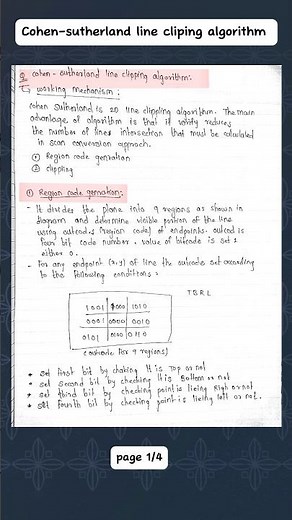 Cohen-sutherland line cliping algorithm
Q cohen - sutherland line clipping algorithm:
working mechanism :
cohen sutherland is 2D line clipping algorithm. The main
advantage of algorithm is that it vastly reduces
the number of lines intersection that must be calculated
in scan conversion approach.
① Region code genration
② clipping
① Region code gernation:
- It divides the plane into 9 regions as shown in
diagram and determine visible portion of the line
using outcodes (region code) of endpoints. outcod is
four bit code number. value of bitcode is set 1
either 0.
- For any endpoint (x,y) of line the outcode set according
to the following conditions :
T B R L
1001 1000 1010
0001 0000 0010
0101 0100 0110
(outcode for 9 regions)
* set first bit by chaking it is Top or not
* set second bit by checking it is Bottom or not
* set third bit by checking point is lieing Righ or not
* set fourth bit by checking point is lieing left or not.
page 1/4